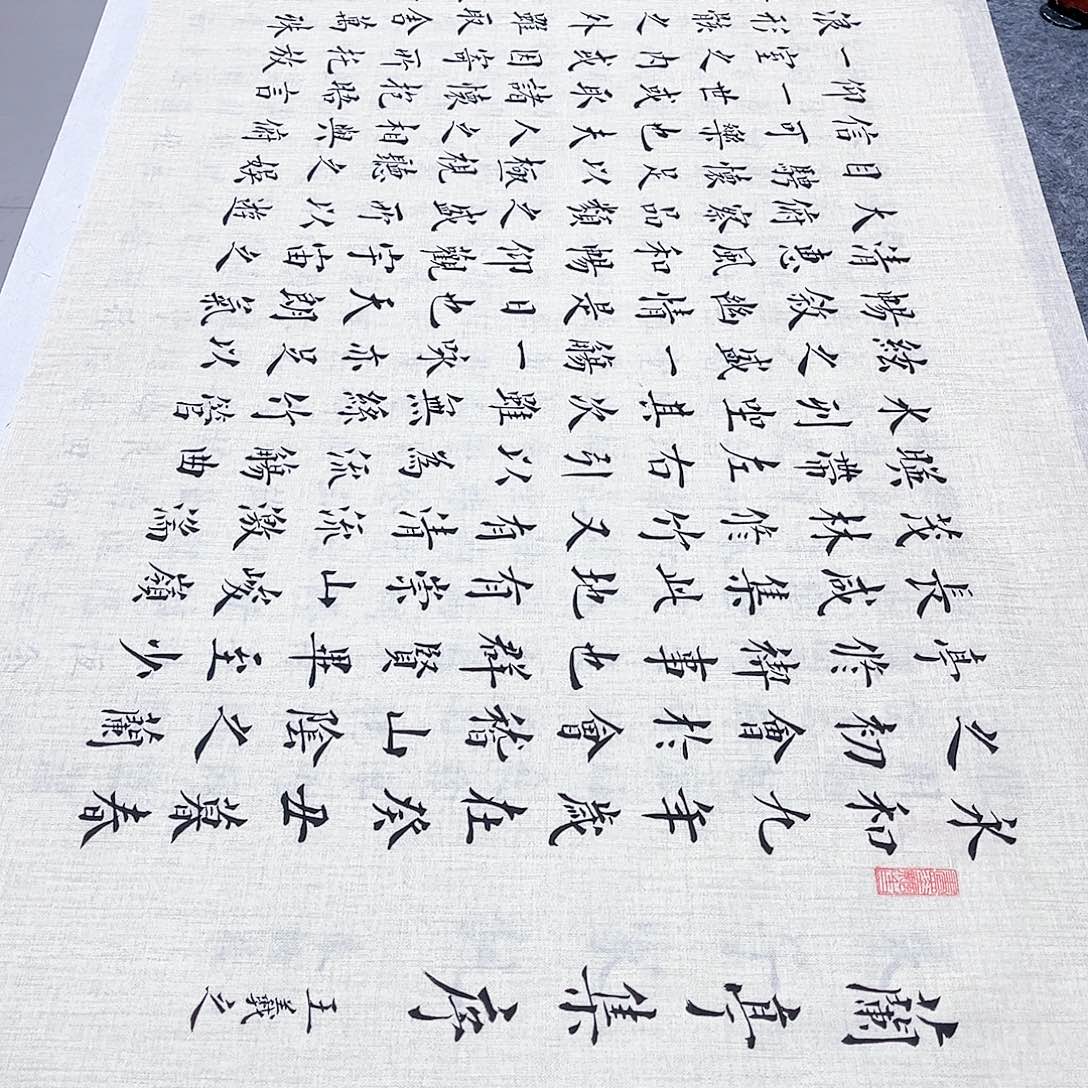 蘭亭集序 王羲之
永和九年歲在癸丑暮春
之初會於會稽山陰之蘭
亭修禊事也群賢畢至少
長咸集此地有崇山峻嶺
茂林修竹又有清流激湍
暎帶左右引以為流觴曲
水列坐其次雖無絲竹管
絃之盛一觴一詠亦足以
暢敘幽情是日也天朗氣
清惠風和暢仰觀宇宙之
大俯察品類之盛所以遊
目騁懷足以極視聽之娛
信可樂也夫人之相與俯
仰一世或取諸懷抱晤言
一室之內或因寄所托放
浪形骸之外雖取舍萬殊